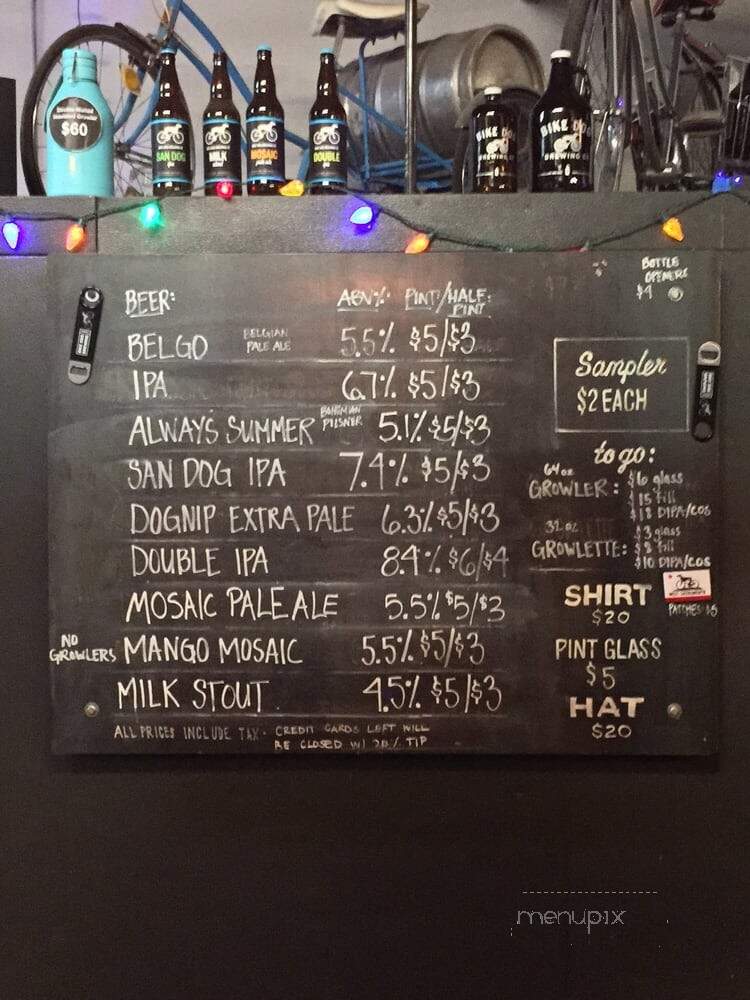 Double-Walled
Insulated Growler
$60
SAN DOG
MILK
MOSAIC
DOUBLE
BIKE DOG
BREWING CO
BIKE DOG
BREWING CO
BOTTLE
OPENERS
$4
BEER: ABV% PINT/HALF-
PINT
BELGO BELGIAN
PALE ALE 5.5% $5/$3
IPA 6.7% $5/$3
ALWAYS SUMMER BOHEMIAN
PILSNER 5.1% $5/$3
SAN DOG IPA 7.4% $5/$3
DOGNIP EXTRA PALE 6.3% $5/$3
DOUBLE IPA 8.4% $6/$4
MOSAIC PALE ALE 5.5% $5/$3
NO
GROWLERS MANGO MOSAIC 5.5% $5/$3
MILK STOUT 4.5% $5/$3
ALL PRICES INCLUDE TAX · CREDIT CARDS LEFT WILL
BE CLOSED W/ 20% TIP
Sampler
$2 EACH
to go:
64 oz
GROWLER: $6 glass
$15 fill
$18 DIPA/COS
32 oz
GROWLETTE: $3 glass
$8 fill
$10 DIPA/COS
PATCHES $5
SHIRT
$20
PINT GLASS
$5
HAT
$20
menupix